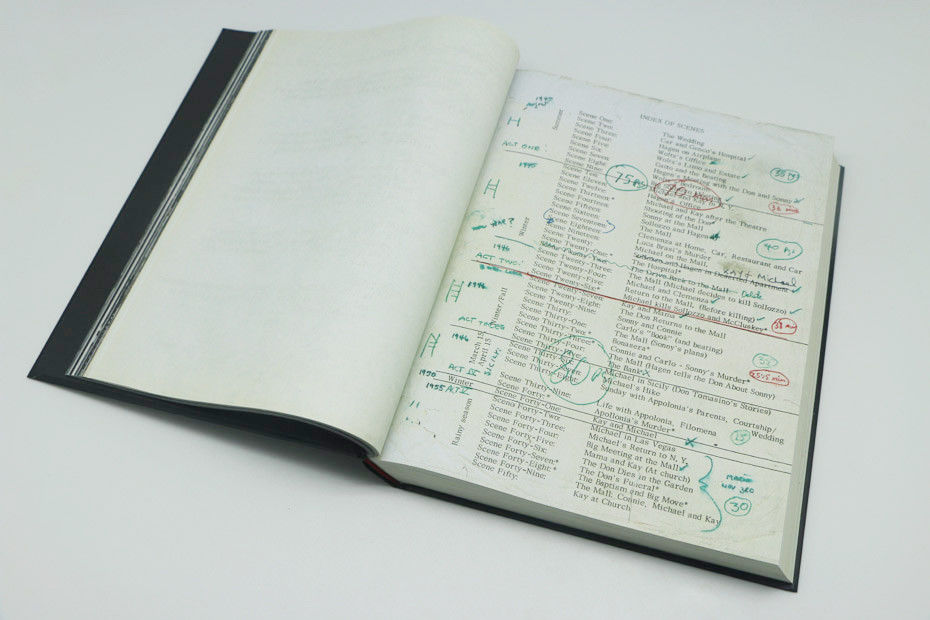 INDEX OF SCENES
Summer
Scene One:
Scene Two:
Scene Three:
Scene Four:
Scene Five
Scene Six
Scene Seven
Scene Eight
Scene Nine:
Scene Eleven:
Scene Twelve:
Scene Thirteen*
Scene Fourteen:
Scene Fifteen:
Scene Sixteen:
Scene Seventeen:
Scene Eighteen:
Scene Nineteen:
Scene Twenty-One:
Scene Twenty-Three:
Scene Twenty-Four:
Scene Twenty-Five:
Scene Twenty-Six:*
Scene Twenty-Seven
Scene Twenty-Eight:
Scene Thirty:
Scene Thirty-One:
Scene Thirty-Two:*
Scene Thirty-Three:*
Scene Thirty-Four:
Scene Thirty-Nine:
Scene Forty:*
Scene Forty-One:
Scene Forty-Two:
Scene Forty-Three:
Scene Forty-Four:
Scene Forty-Five:
Scene Forty-Six:
Scene Forty-Seven*
Scene Forty-Eight:*
Scene Forty-Nine:
Scene Fifty:
The Wedding
Car and Genco's Hospital
Hagen on Airplane
Woltz's Office
Woltz's Limo and Estate
Gatto and the Beating
Hagen's Meeting with the Don and Sonny
Hagen's Office
Michael and Kay after the Theatre
Shooting of the Don*
Sollozzo and Hagen
The Mall
Clemenza at Home, Car, Restaurant and Car
Luca Brasi's Murder
Michael on the Mall
The Hospital*
Sonny and Hagen in Deserted Apartment
Kay & Michael
The Drive Back to the Mall
Delete
The Mall (Michael decides to kill Sollozzo)
Michael and Clemenza
Return to the Mall (Before killing)
Michael kills Sollozzo and McCluskey*
Kay and Mama
The Don Returns to the Mall
Sonny and Connie
Carlo's "Book" (and beating)
The Mall (Sonny's plans)
Bonasera*
Connie and Carlo - Sonny's Murder*
The Mall (Hagen tells the Don About Sonny)
The Bank
Michael in Sicily (Don Tomasino's Stories)
Michael's Hike
Sunday with Appolonia's Parents, Courtship/
Wedding
Life with Appolonia, Filomena
Apollonia's Murder*
Kay and Michael
Michael in Las Vegas
Michael's Return to N. Y.
Big Meeting at the Mall
Mama and Kay (At church)
The Don Dies in the Garden
The Don's Funeral*
The Baptism and Big Move*
The Mall: Connie, Michael and Kay
Kay at Church
I
ACT ONE:
1945
II
Winter
1946
ACT TWO:
III
1946
Winter/Fall
ACT THREE
1946
IV
March 15
April 15
SICILY
1950
Winter
1955 ACT V
Rainy season
75
90
35
40
25
30